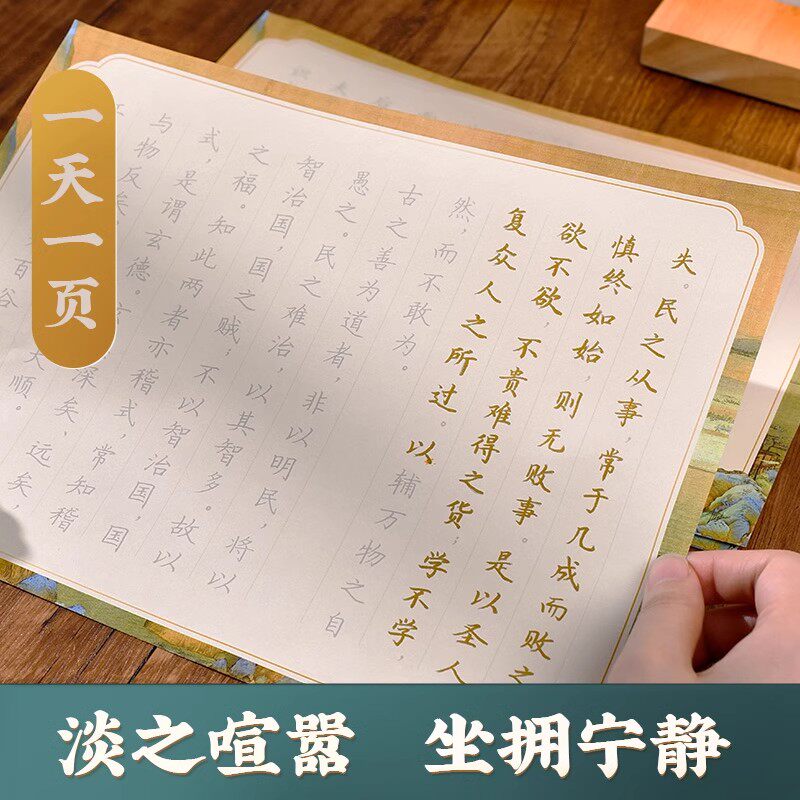 一天一页
失。民之从事,常于几成而败之
慎终如始,则无败事。是以圣人
欲不欲,不贵难得之货;学不学,
复众人之所过。以辅万物之自
然,而不敢为。
古之善为道者,非以明民,将以
愚之。民之难治,以其智多。故以
智治国,国之贼;不以智治国,国
之福。知此两者亦稽式,常知稽
式,是谓玄德。玄深矣、远矣,
与物反矣大顺。
百谷
淡之喧嚣 坐拥宁静